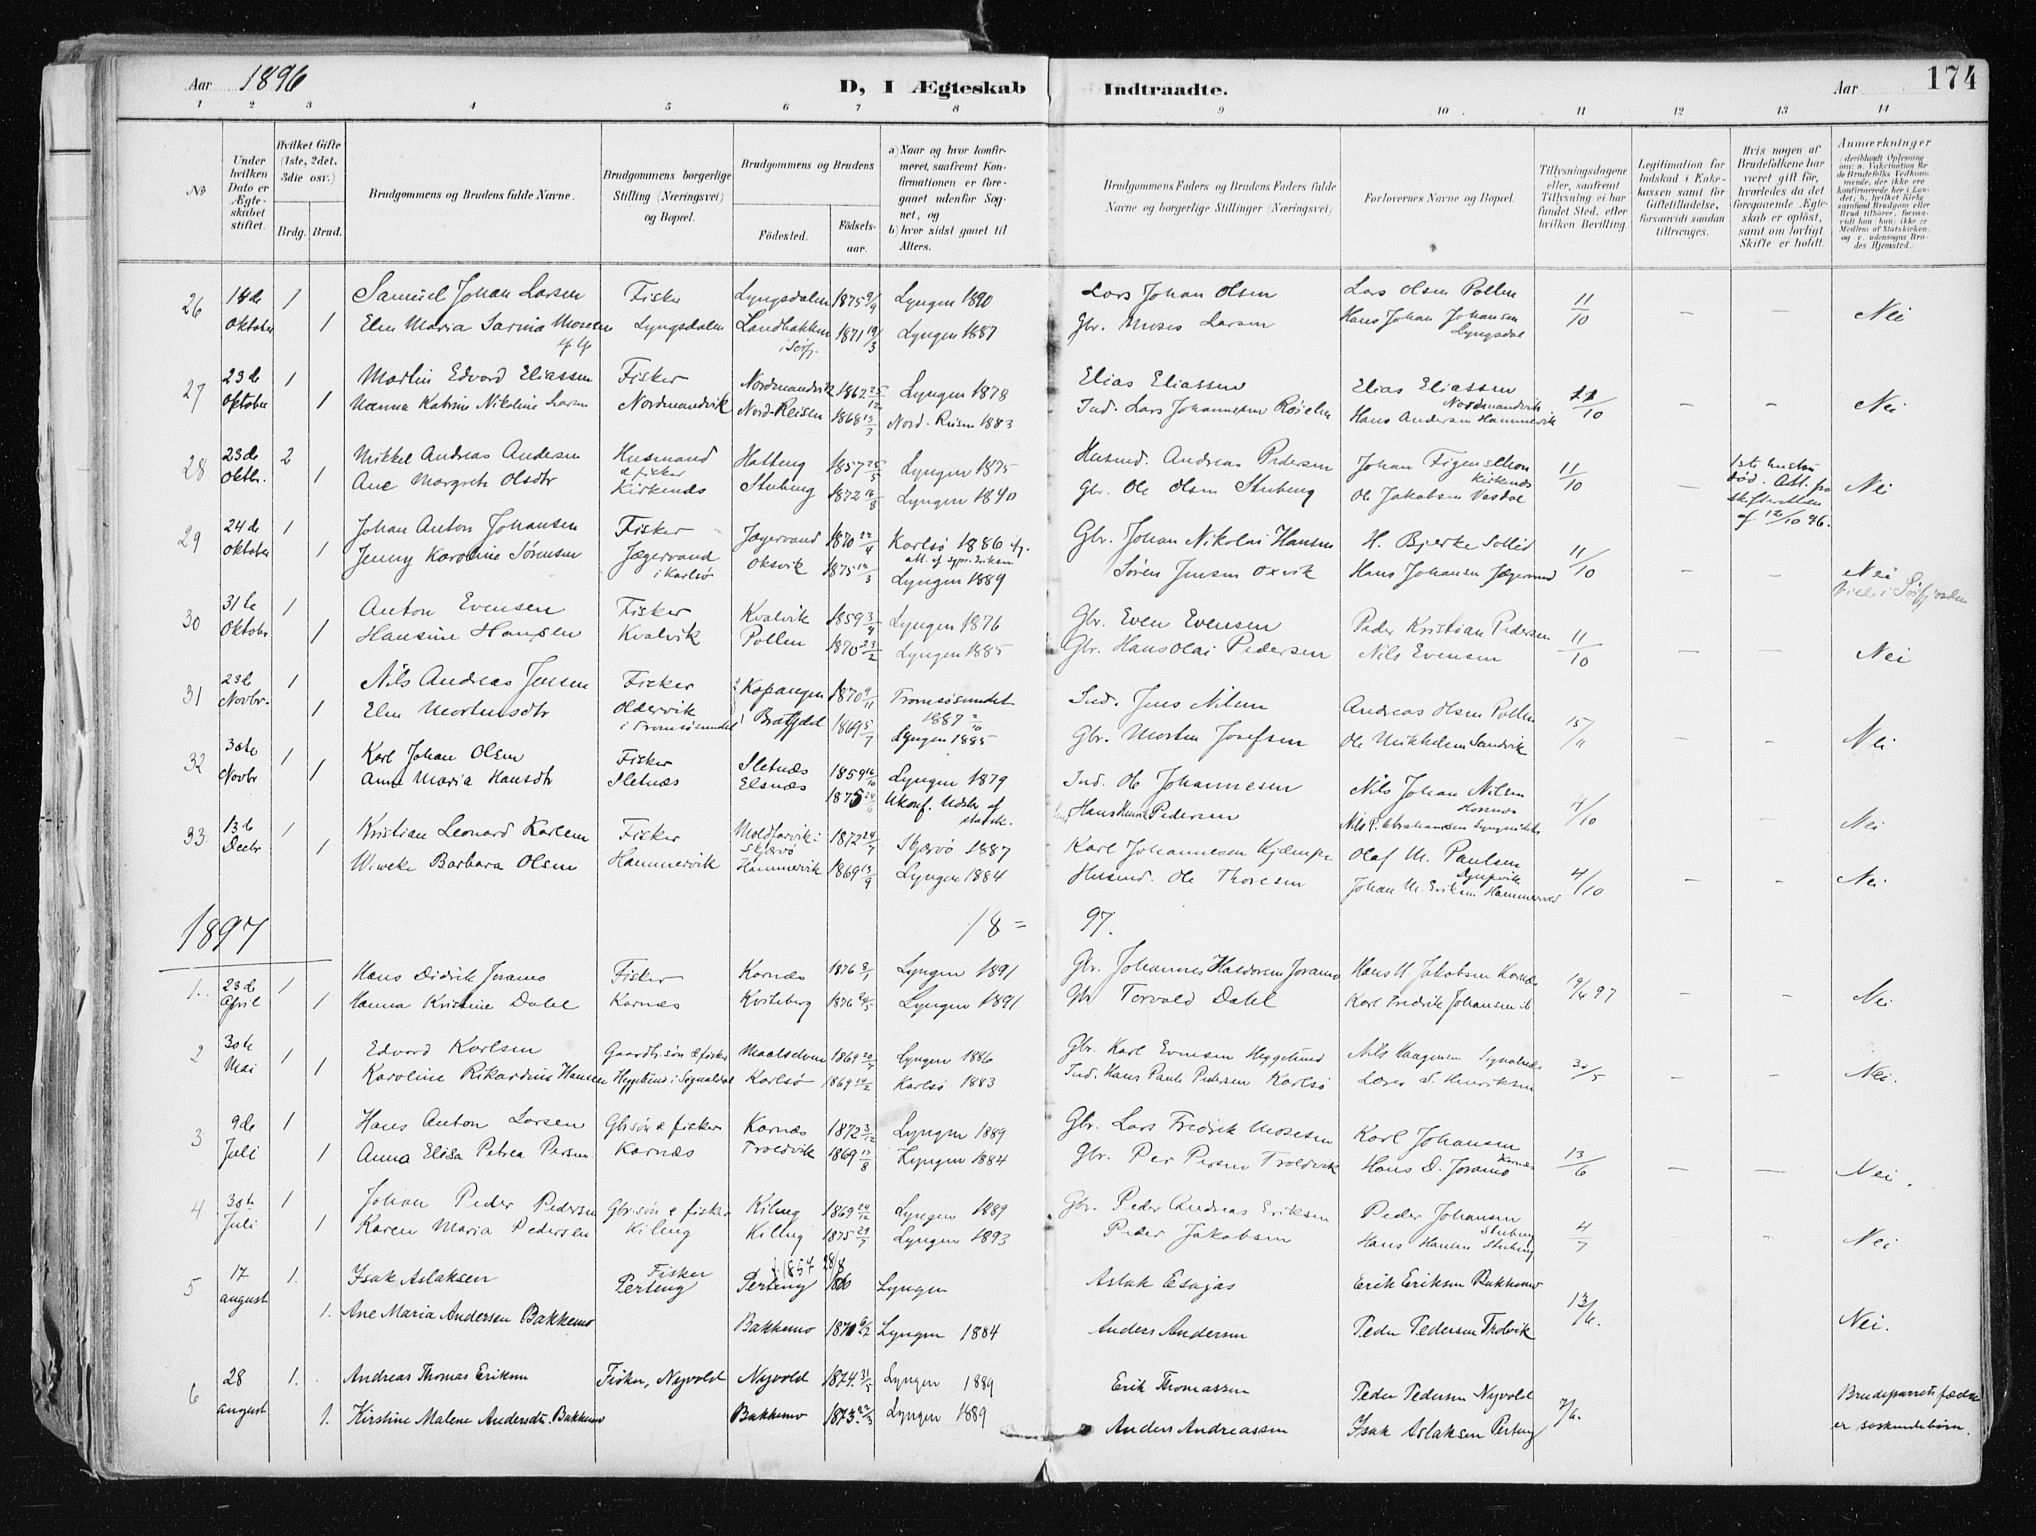 Aar 1896 D, I Ægteskab Indtraadte. Aar 174
1 2 3 4 5 6 7 8 9 10 11 12 13 14
Nr. Under hvilken Dato er Ægteskabet stiftet. Hvilket Gifte (1ste, 2det, 3die osv.) Brdg. Brud. Brudgommens og Brudens fulde Navne. Brudgommens borgerlige Stilling (Næringsvei) og Bopæl. Brudgommens og Brudens Fødested. Fødselsaar. a) Naar og hvor konfirmeret, saafremt Konfirmationen er foregaaet udenfor Sognet, og b) hvor sidst gaaet til Alters. Brudgommens Faders og Brudens Faders fulde Navne og borgerlige Stillinger (Næringsvei) Forlovernes Navne og Bopæl. Tillysningsdagene eller, saafremt Tillysning ei har fundet Sted, efter hvilken Bevilling. Legitimation for Indskud i Enkekassen samt for Giftetilladelse, forsaavidt saadan tiltrænges. Hvis nogen af Brudefolkene har været gift før, hvorledes da det foregaaende Ægteskab er opløst, samt om lovligt Skifte er holdt. Anmærkninger
26 14de 1 Samuel Johan Larsen Fisker Lyngsdalen 1875 9/9 Lyngen 1890 Lars Johan Olsen Lars Olsen Pollen 11/10 – – Nei
Oktober 1 Elen Maria Sarina Mosesen Lyngsdalen Sandbakken 1871 19/3 Lyngen 1887 Gbr. Moses Larsen Hans Johan Johansen
i Sørfj. Lyngsdal
27 23de 1 Martin Edvard Eliassen Fisker Nordmandvik 1862 25/12 Lyngen 1878 Elias Eliassen Elias Eliassen 11/10 – – Nei
Oktober 1 Nanna Katrine Nikoline Larsen Nordmandvik Nord-Reisen 1868 13/7 Nord-Reisen 1883 Ind. Lars Johannesen Røielen Nordmandvik
Hans Andersen Hammervik
28 23de 2 Mikkel Andreas Andersen Husmand Hatteng 1857 25/5 Lyngen 1875 Husmd. Andreas Pedersen Johan Figenschou 11/10 – 1ste hustru Nei
Oktbr. 1 Ane Margrete Olsdtr & fisker Stubeng 1872 16/8 Lyngen 1890 Gbr. Ole Olsen Stubeng Kirkenes død. Att. fra
Kirkenes Ole Jakobsen Vasdal skifteretten
af 12/10 96.
29 24de 1 Johan Anton Johansen Fisker Jægervand 1870 22/4 Karlsø 1886 Gbr. Johan Nikolai Hansen H. Bjerke Sollid 11/10 – – Nei
Oktober 1 Jenny Karoline Sørensen Jægervand Oksvik 1875 12/3 att. af spr. Eriksen Søren Jensen Oxvik Hans Johansen Jægervand
i Karlsø Lyngen 1889 Viede i Sørfjorden
30 31te 1 Anton Evensen Fisker Kvalvik 1859 3/9 Lyngen 1876 Gbr. Even Evensen Peder Kristian Pedersen 11/10 – – Nei
Oktobr 1 Hansine Hansen Kvalvik Pollen 1870 23/2 Lyngen 1885 Gbr. Hans Olai Pedersen Nils Evensen
31 23de 1 Nils Andreas Jensen Fisker Kopangen 1870 9/11 Tromsøsundet Ind. Jens Nilsen Andreas Olsen Pollen 15/11 Nei
Novbr. 1 Elen Mortensdtr Oldervik Bratfjeld 1869 5/7 1887 2/10 Gbr. Morten Josefsen Ole Mikkelsen Sandvik
i Tromsøsundet Lyngen 1885
32 30te 1 Karl Johan Olsen Fisker Sletnæs 1859 16/10 Lyngen 1879 Ind. Ole Johannesen Nils Johan Nilsen 4/10 – Nei
Novbr 1 Anne Maria Hansdtr Sletnæs Elsnæs 1875 24/6 Ukonf. Hans Henrik Pedersen Hornnes
33 13de 1 Kristian Leonard Karlsen Fisker Moldfarvik i 1872 24/7 Skjærvø 1887 Karl Johannesen Kjæmpe Olaf M. Paulsen 4/10 – – Nei
Decbr 1 Wiveke Barbara Olsen Hammervik Skjærvø
Hammervik 1869 13/9 Lyngen 1884 Husmd. Ole Thoresen Johan M. Eriksen Hammervik
1897 18= 97.
1. 23de 1 Hans Didrik Joramo Fisker Karnæs 1876 3/1 Lyngen 1891 Gbr. Johannes Haldorsen Joramo Hans H. Jakobsen Karnæs 19/4 97 – – Nei
April 1 Hanna Kristine Dahl Karnæs Kviteberg 1876 24/5 Lyngen 1891 Gbr Torvald Dahl Karl Fredrik Johansen ib
2 30te 1 Edvard Karlsen Gaardbr.søn & fisker Maalselven 1869 20/7 Lyngen 1886 Gbr. Karl Evensen Heggelund Nils Haagensen Signalnæs 30/5 – – Nei.
Mai 1 Karoline Rikardine Hansen Heggelund i Signaldal Karlsø 1869 14/2 Karlsø 1883 Ind. Hans Pauli Pedersen Karlsø Lars S. Henriksen
3 9de 1 Hans Anton Larsen Gbr.søn & fisker Karnæs 1872 3/12 Lyngen 1889 Gbr. Lars Fredrik Mosesen Karl Johansen 13/6 – – Nei.
Juli 1 Anna Elisa Petrea Persen Karnæs Troldvik 1869 13/8 Lyngen 1884 Gbr. Per Persen Troldvik Karnæs
Hans D. Joramo
4 30te 1 Johan Peder Pedersen Gbr.søn & fisker Kileng 1869 24/12 Lyngen 1889 Gbr. Peder Andreas Eriksen Peder Johansen 4/7 Nei
Juli 1 Karen Maria Pedersen Kileng Kileng 1875 29/7 Lyngen 1893 Peder Jakobsen Stubeng
Hans Hansen Stubeng
5 17 1. Isak Aslaksen Fisker 1857 28/8
august Perteng Perteng Lyngen Aslak Esajas Erik Eriksen Bakkemo 13/6. Nei.
1. Ane Maria Andersen Bakkemo Bakkemo 1870 6/2 Lyngen 1884 Anders Andersen Peder Pedersen Trolvik
6 28 1. Andreas Thomas Eriksen Fisker, Nyvold Nyvold 1874. 31/5 Lyngen 1889 Erik Thomassen Peder Pedersen Nyvold 7/6. Brudeparrets fædre
august 1. Kirstine Malene Andersdtr. Bakkemo Bakkemo 1873. 22/3 Lyngen 1889 Anders Andreassen Isak Aslaksen Perteng er søskendebørn.